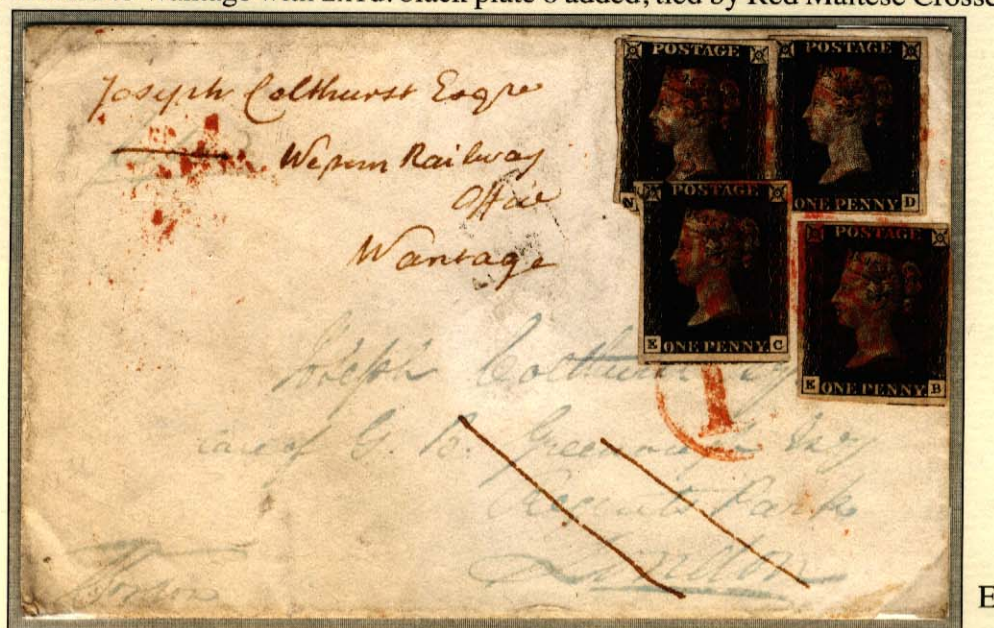 to Wantage with 2x1d. black plate 8 added, tied by Red Maltese Crosse
Joseph Colthurst Esqre
Western Railway
Office
Wantage
POSTAGE
N
POSTAGE
ONE PENNY D
POSTAGE
E ONE PENNY. C
POSTAGE
K ONE PENNY. B
1
Joseph
care of G. B. Esq
Regents Park
London
E